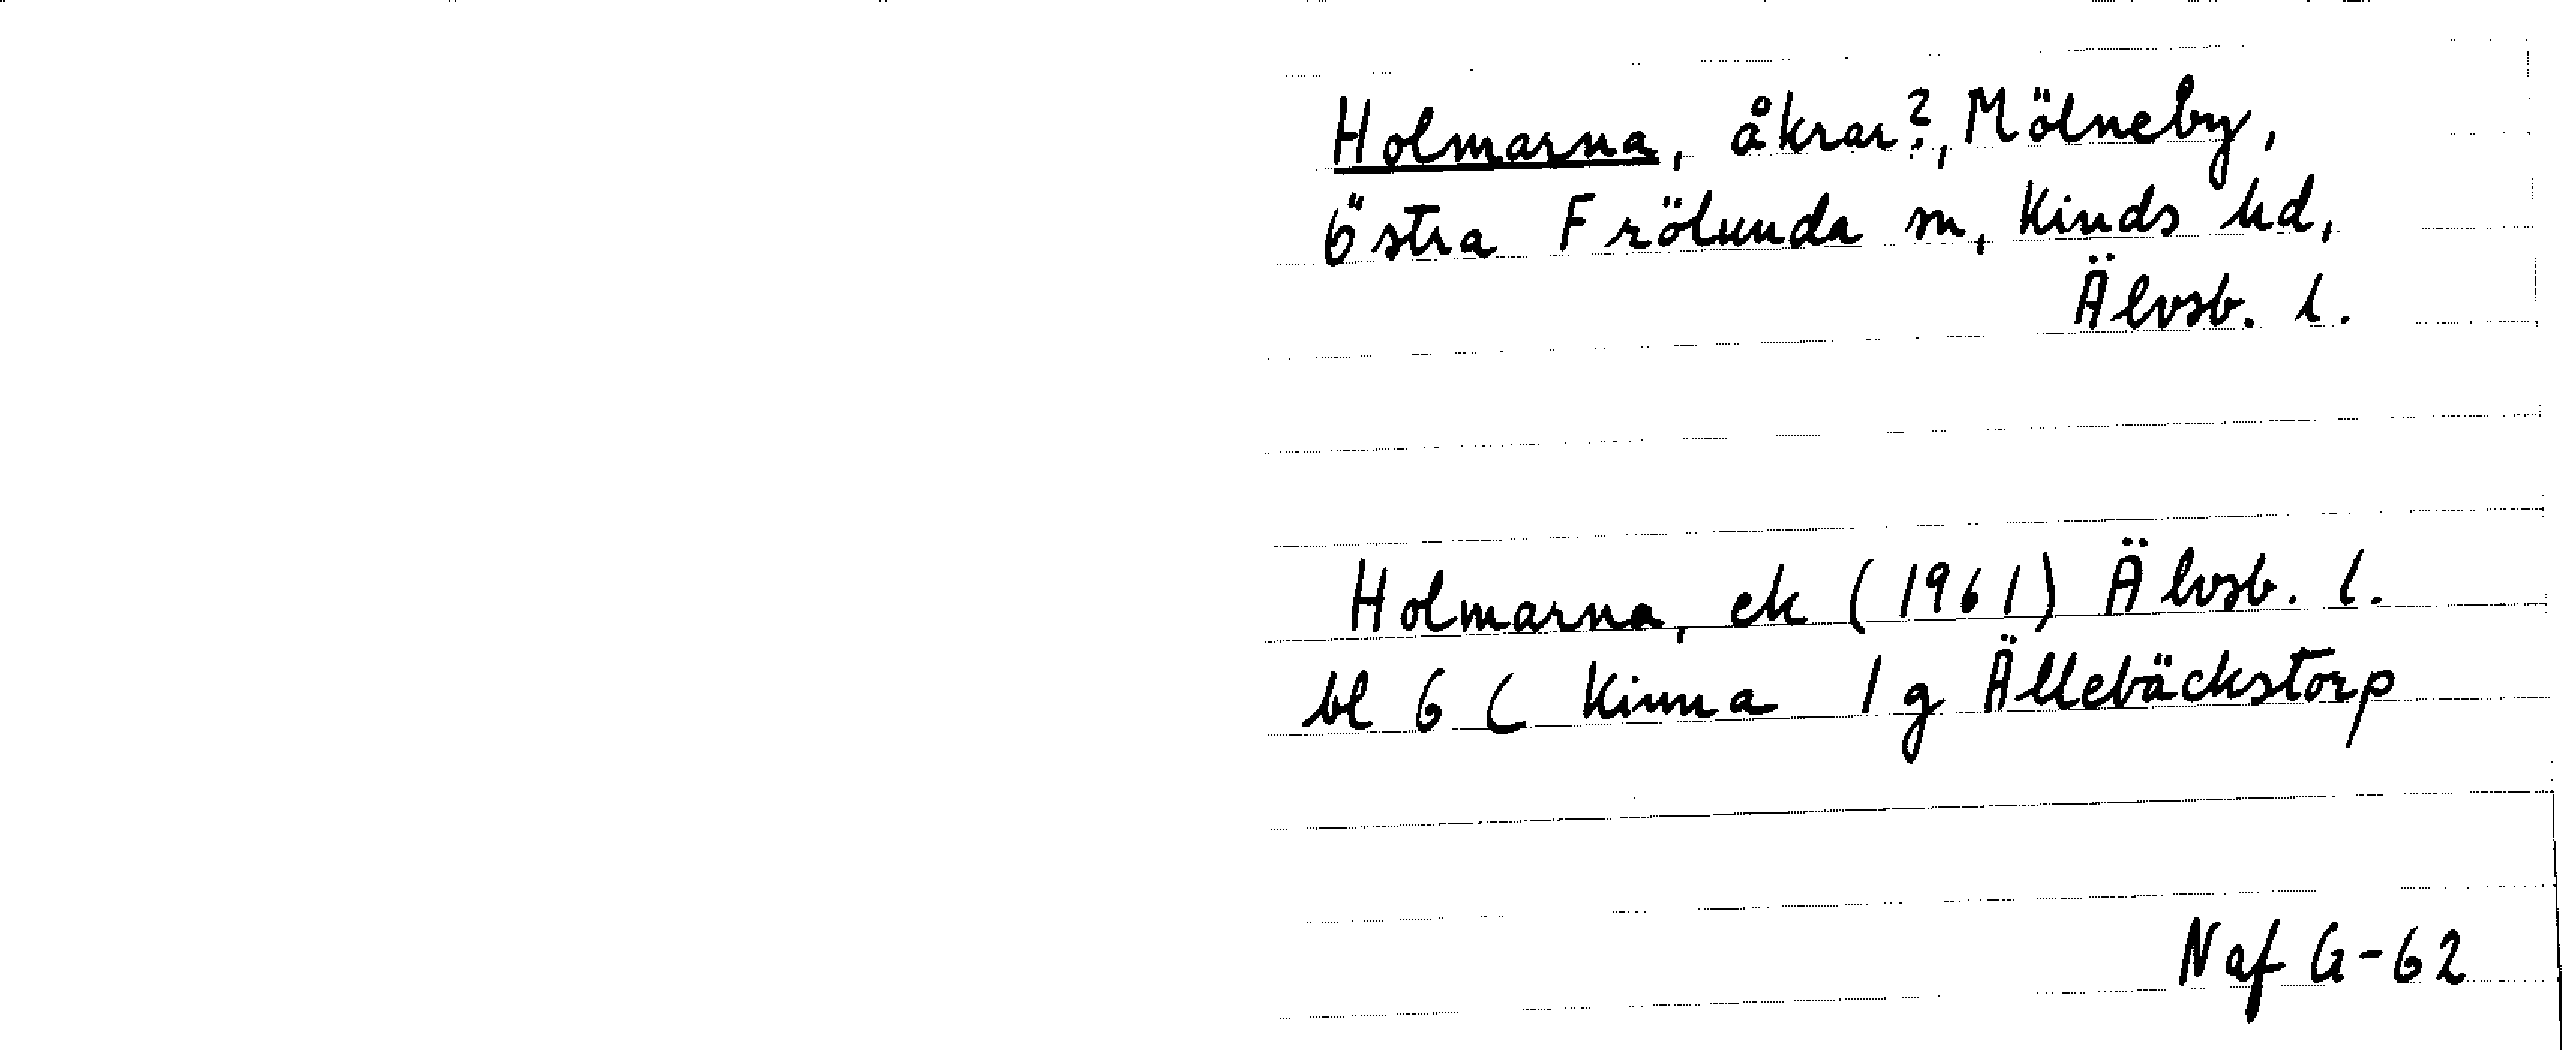 Holmarna, åkrar?, Mölneby,
Östra Frölunda sn, Kinds hd,
Älvsb. l.
Holmarna, ek (1961) Älvsb. l.
bl 6 C Kinna 1 g Ällebäckstorp
Naf G-62